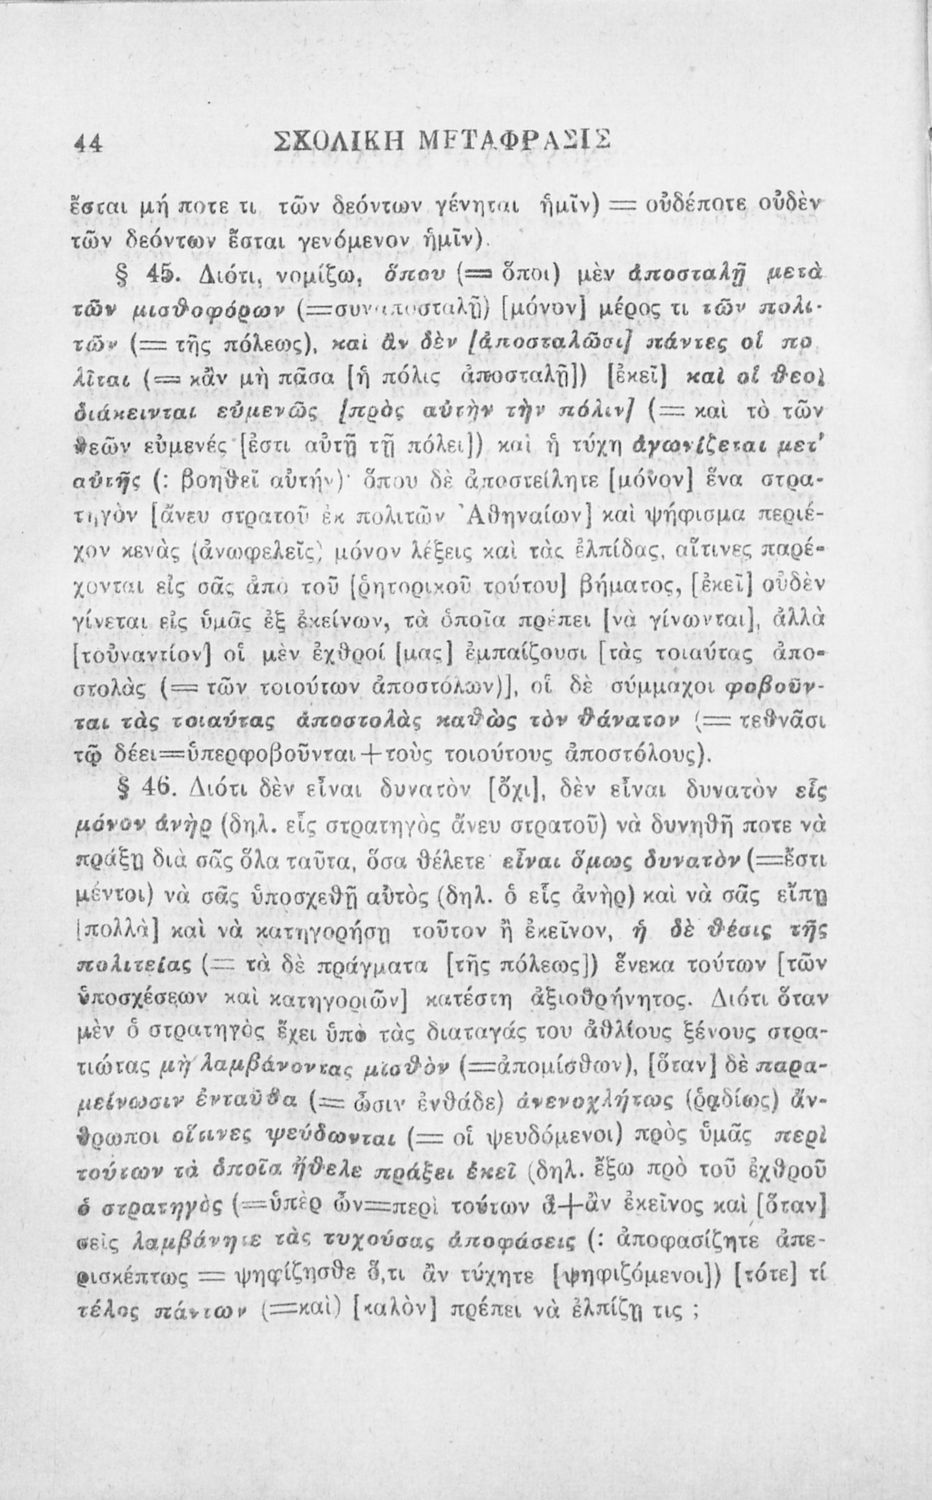 44 ΣΧΟΛΙΚΗ ΜΕΤΑΦΡΑΣΙΣ
ἔσται μή ποτε τι τῶν δεόντων γένηται ἡμῖν) = οὐδέποτε οὐδὲν
τῶν δεόντων ἔσται γενόμενον ἡμῖν).
§ 45. Διότι, νομίζω, ὅπου (= ὅποι) μὲν ἀποσταλῇ μετὰ
τῶν μισθοφόρων (=συναποσταλῇ) [μόνον] μέρος τι τῶν πολι-
τῶν (= τῆς πόλεως), καὶ ἂν δὲν [ἀποσταλῶσι] πάντες οἱ πο
λῖται (= κἂν μὴ πᾶσα [ἡ πόλις ἀποσταλῇ]) [ἐκεῖ] καὶ οἱ θεοὶ
διάκεινται εὐμενῶς [πρὸς αὐτὴν τὴν πόλιν] (= καὶ τὸ τῶν
θεῶν εὐμενές [ἐστι αὐτῇ τῇ πόλει]) καὶ ἡ τύχη ἀγωνίζεται μετ'
αὐτῆς (: βοηθεῖ αὐτήν)· ὅπου δὲ ἀποστείλητε [μόνον] ἕνα στρα-
τηγὸν [ἄνευ στρατοῦ ἐκ πολιτῶν Ἀθηναίων] καὶ ψήφισμα περιέ-
χον κενὰς (ἀνωφελεῖς) μόνον λέξεις καὶ τὰς ἐλπίδας, αἵτινες παρέ-
χονται εἰς σᾶς ἀπὸ τοῦ [ῥητορικοῦ τούτου] βήματος, [ἐκεῖ] οὐδὲν
γίνεται εἰς ὑμᾶς ἐξ ἐκείνων, τὰ ὁποῖα πρέπει [νὰ γίνωνται], ἀλλὰ
[τοὐναντίον] οἱ μὲν ἐχθροί [μας] ἐμπαίζουσι [τὰς τοιαύτας ἀπο-
στολὰς (= τῶν τοιούτων ἀποστόλων)], οἱ δὲ σύμμαχοι φοβοῦν-
ται τὰς τοιαύτας ἀποστολὰς καθὼς τὸν θάνατον (= τεθνᾶσι
τῷ δέει=ὑπερφοβοῦνται+τοὺς τοιούτους ἀποστόλους).
§ 46. Διότι δὲν εἶναι δυνατὸν [ὄχι], δὲν εἶναι δυνατὸν εἷς
μόνον ἀνὴρ (δηλ. εἷς στρατηγὸς ἄνευ στρατοῦ) νὰ δυνηθῇ ποτε νὰ
πράξῃ διὰ σᾶς ὅλα ταῦτα, ὅσα θέλετε· εἶναι ὅμως δυνατὸν (=ἔστι
μέντοι) νὰ σᾶς ὑποσχεθῇ αὐτὸς (δηλ. ὁ εἷς ἀνὴρ) καὶ νὰ σᾶς εἴπῃ
[πολλὰ] καὶ νὰ κατηγορήσῃ τοῦτον ἢ ἐκεῖνον, ἡ δὲ θέσις τῆς
πολιτείας (= τὰ δὲ πράγματα [τῆς πόλεως]) ἕνεκα τούτων [τῶν
ὑποσχέσεων καὶ κατηγοριῶν] κατέστη ἀξιοθρήνητος. Διότι ὅταν
μὲν ὁ στρατηγὸς ἔχει ὑπὸ τὰς διαταγάς του ἀθλίους ξένους στρα-
τιώτας μὴ λαμβάνοντας μισθὸν (=ἀπομίσθων), [ὅταν] δὲ παρα-
μείνωσιν ἐνταῦθα (= ὦσιν ἐνθάδε) ἀνενοχλήτως (ῥᾳδίως) ἄν-
θρωποι οἵτινες ψεύδωνται (= οἱ ψευδόμενοι) πρὸς ὑμᾶς περὶ
τούτων τὰ ὁποῖα ἤθελε πράξει ἐκεῖ (δηλ. ἔξω πρὸ τοῦ ἐχθροῦ
ὁ στρατηγὸς (=ὑπὲρ ὧν=περὶ τούτων ἃ+ἂν ἐκεῖνος καὶ [ὅταν]
σεῖς λαμβάνητε τὰς τυχούσας ἀποφάσεις (: ἀποφασίζητε ἀπε-
ρισκέπτως = ψηφίζησθε ὅ,τι ἂν τύχητε [ψηφιζόμενοι]) [τότε] τί
τέλος πάντων (=καὶ) [καλὸν] πρέπει νὰ ἐλπίζῃ τις ;